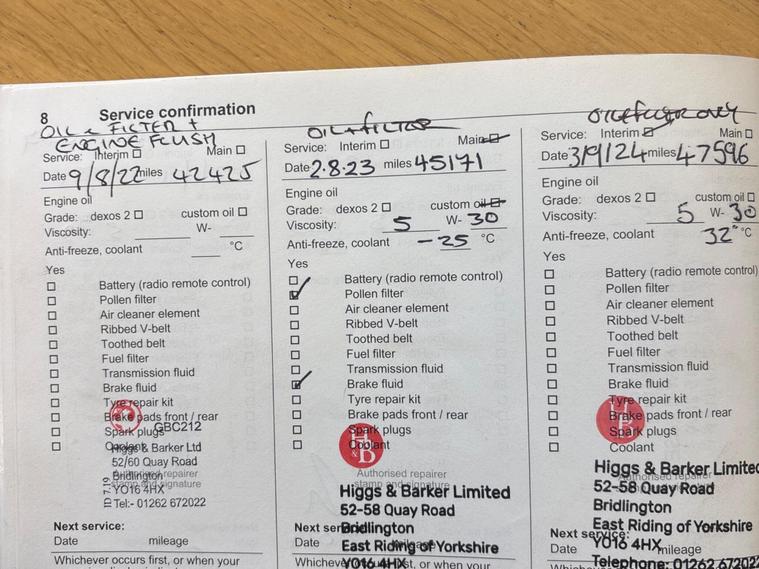 8 Service confirmation
OIL & FILTER +
ENGINE FLUSH
Service: Interim ☐ Main ☐
Date 9/8/22 miles 42425
Engine oil
Grade: dexos 2 ☐ custom oil ☐
Viscosity: W-
Anti-freeze, coolant °C
Yes
☐ Battery (radio remote control)
☐ Pollen filter
☐ Air cleaner element
☐ Ribbed V-belt
☐ Toothed belt
☐ Fuel filter
☐ Transmission fluid
☐ Brake fluid
☐ Tyre repair kit
☐ Brake pads front / rear
☐ Spark plugs
GBC212
☐ Coolant
Higgs & Barker Ltd
52/60 Quay Road
Authorised repairer
Bridlington
stamp and signature
YO16 4HX
Tel:- 01262 672022
ID 7.19
Next service:
Date mileage
Whichever occurs first, or when your
OIL + FILTER
Service: Interim ☐ Main ☐
Date 2.8.23 miles 45171
Engine oil
Grade: dexos 2 ☐ custom oil ☐
Viscosity: 5 W- 30
Anti-freeze, coolant -25 °C
Yes
☐ Battery (radio remote control)
☑ Pollen filter
☐ Air cleaner element
☐ Ribbed V-belt
☐ Toothed belt
☐ Fuel filter
☐ Transmission fluid
☑ Brake fluid
☐ Tyre repair kit
☐ Brake pads front / rear
☐ Spark plugs
☐ Coolant
H&B
Authorised repairer
stamp and signature
Higgs & Barker Limited
52-58 Quay Road
Bridlington
East Riding of Yorkshire
YO16 4HX
Next service:
Date mileage
Whichever occurs first, or when your
OIL & FILTER ONLY
Service: Interim ☑ Main ☐
Date 3/9/24 miles 47596
Engine oil
Grade: dexos 2 ☐ custom oil ☐
Viscosity: 5 W- 30
Anti-freeze, coolant 32° °C
Yes
☐ Battery (radio remote control)
☐ Pollen filter
☐ Air cleaner element
☐ Ribbed V-belt
☐ Toothed belt
☐ Fuel filter
☐ Transmission fluid
☐ Brake fluid
☐ Tyre repair kit
☐ Brake pads front / rear
☐ Spark plugs
☐ Coolant
Higgs & Barker Limited
Authorised repairer
52-58 Quay Road
Bridlington
East Riding of Yorkshire
YO16 4HX
Telephone: 01262 672022
Next service:
Date mileage